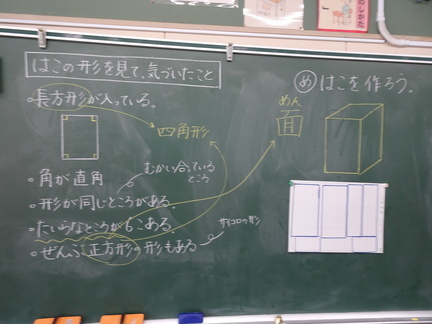 はこの形を見て、気づいたこと
・長方形が入っている。
四角形
・角が直角
むかい合っている
ところ
・形が同じところがある。
・たいらなところが6こある。
・ぜんぶ正方形の形もある
サイコロの形
め はこを作ろう。
めん
面